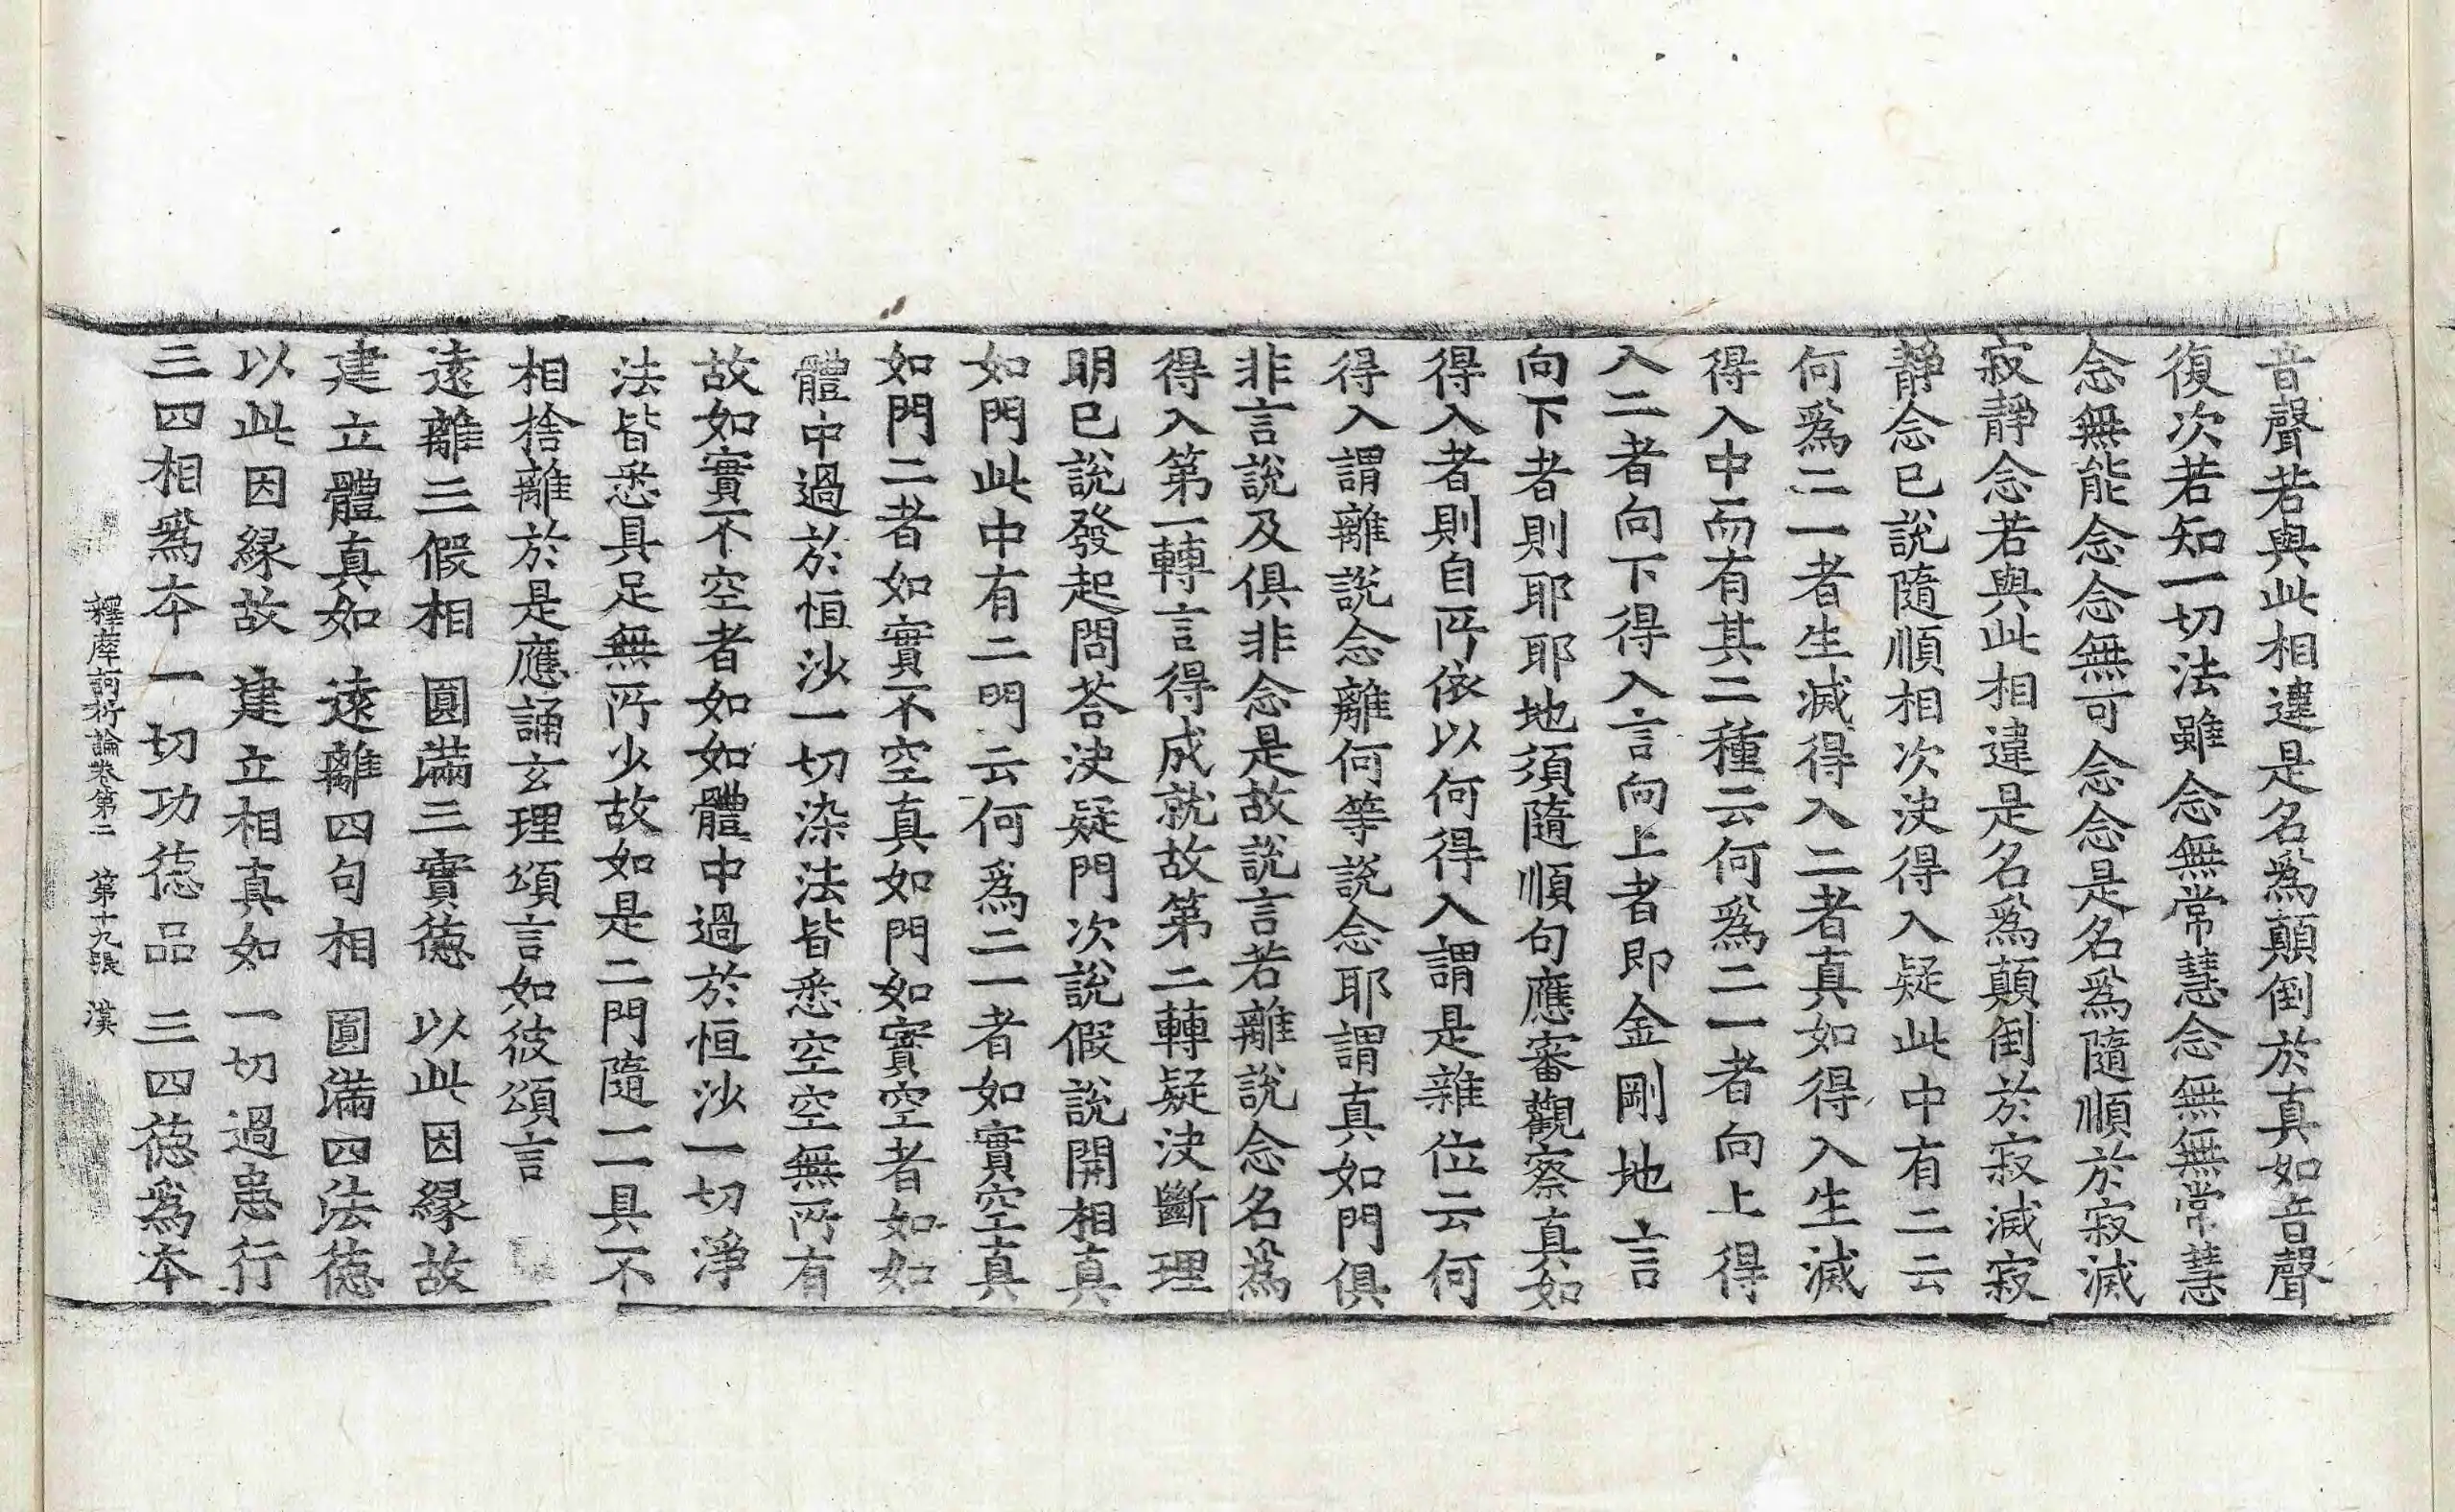 音聲若與此相違是名爲顛倒於真如音聲
復次若知一切法雖念無常慧念無無常慧
念無能念念無可念念是名爲隨順於寂滅
寂靜念若與此相違是名爲顛倒於寂滅寂
靜念已說隨順相次決得入疑此中有二云
何爲二一者生滅得入二者真如得入生滅
得入中而有其二種云何爲二一者向上得
入二者向下得入言向上者即金剛地言
向下者則耶耶地須隨順句應審觀察真如
得入者則自所依以何得入謂是雜位云何
得入謂離說念離何等說念耶謂真如門俱
非言說及俱非念是故說言若離說念名爲
得入第一轉言得成就故第二轉疑決斷理
明已說發起問荅決疑門次說假說開相真
如門此中有二門云何爲二一者如實空真
如門二者如實不空真如門如實空者如如
體中過於恒沙一切染法皆悉空空無所有
故如實不空者如如體中過於恒沙一切淨
法皆悉具足無所少故如是二門隨一具不
相捨離於是應誦玄理頌言如彼頌言
遠離三假相　圓滿三實德　以此因緣故
建立體真如　遠離四句相　圓滿四法德
以此因緣故　建立相真如　一切過患行
三四相爲本　一切功德品　三四德爲本
釋摩訶衍論卷第二　第十九張　漢